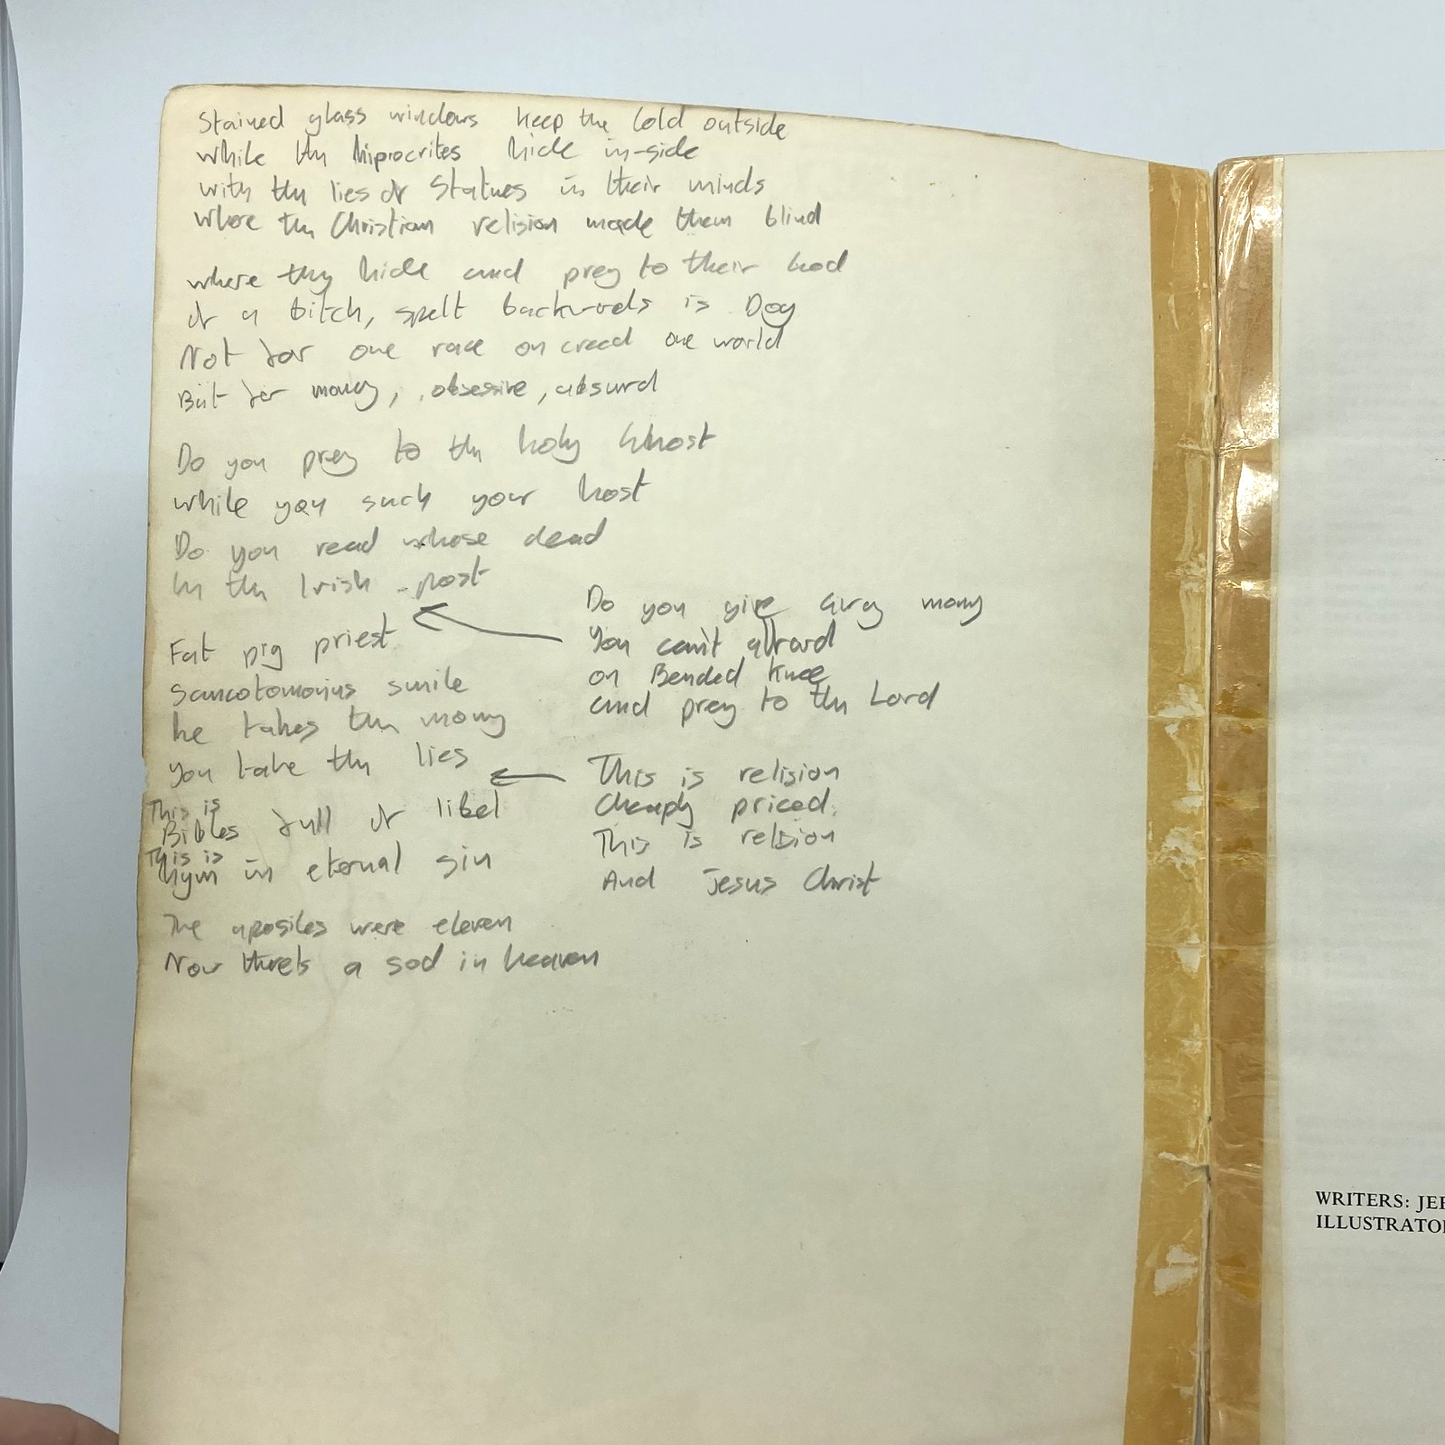 Stained glass windows keep the Cold outside
while the hipiocrites hide in-side
with the lies of Statues in their minds
Where the Christian relision made them blind
where they hide and prey to their God
of a bitch, spelt backwods is Dog
Not for one race on creed one world
But for money, obsessive, absurd
Do you prey to the holy Ghost
while you suck your host
Do you read whose dead
In the Irish post
Do you give away money
You can't afford
on Bended knee
and prey to the Lord
Fat pig priest
Sancotomonius smile
he takes the money
you take the lies
This is relision
Cheaply priced.
This is relision
And Jesus Christ
This is
Bibles full of libel
This is
hym in eternal sin
The aposiles were eleven
Now there's a sod in heaven
WRITERS: JEF
ILLUSTRATO